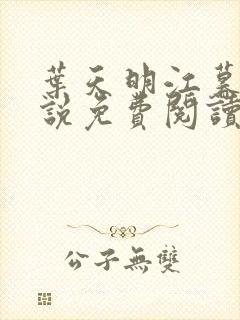 葉天明江慕
說免費閱讀
公子無雙